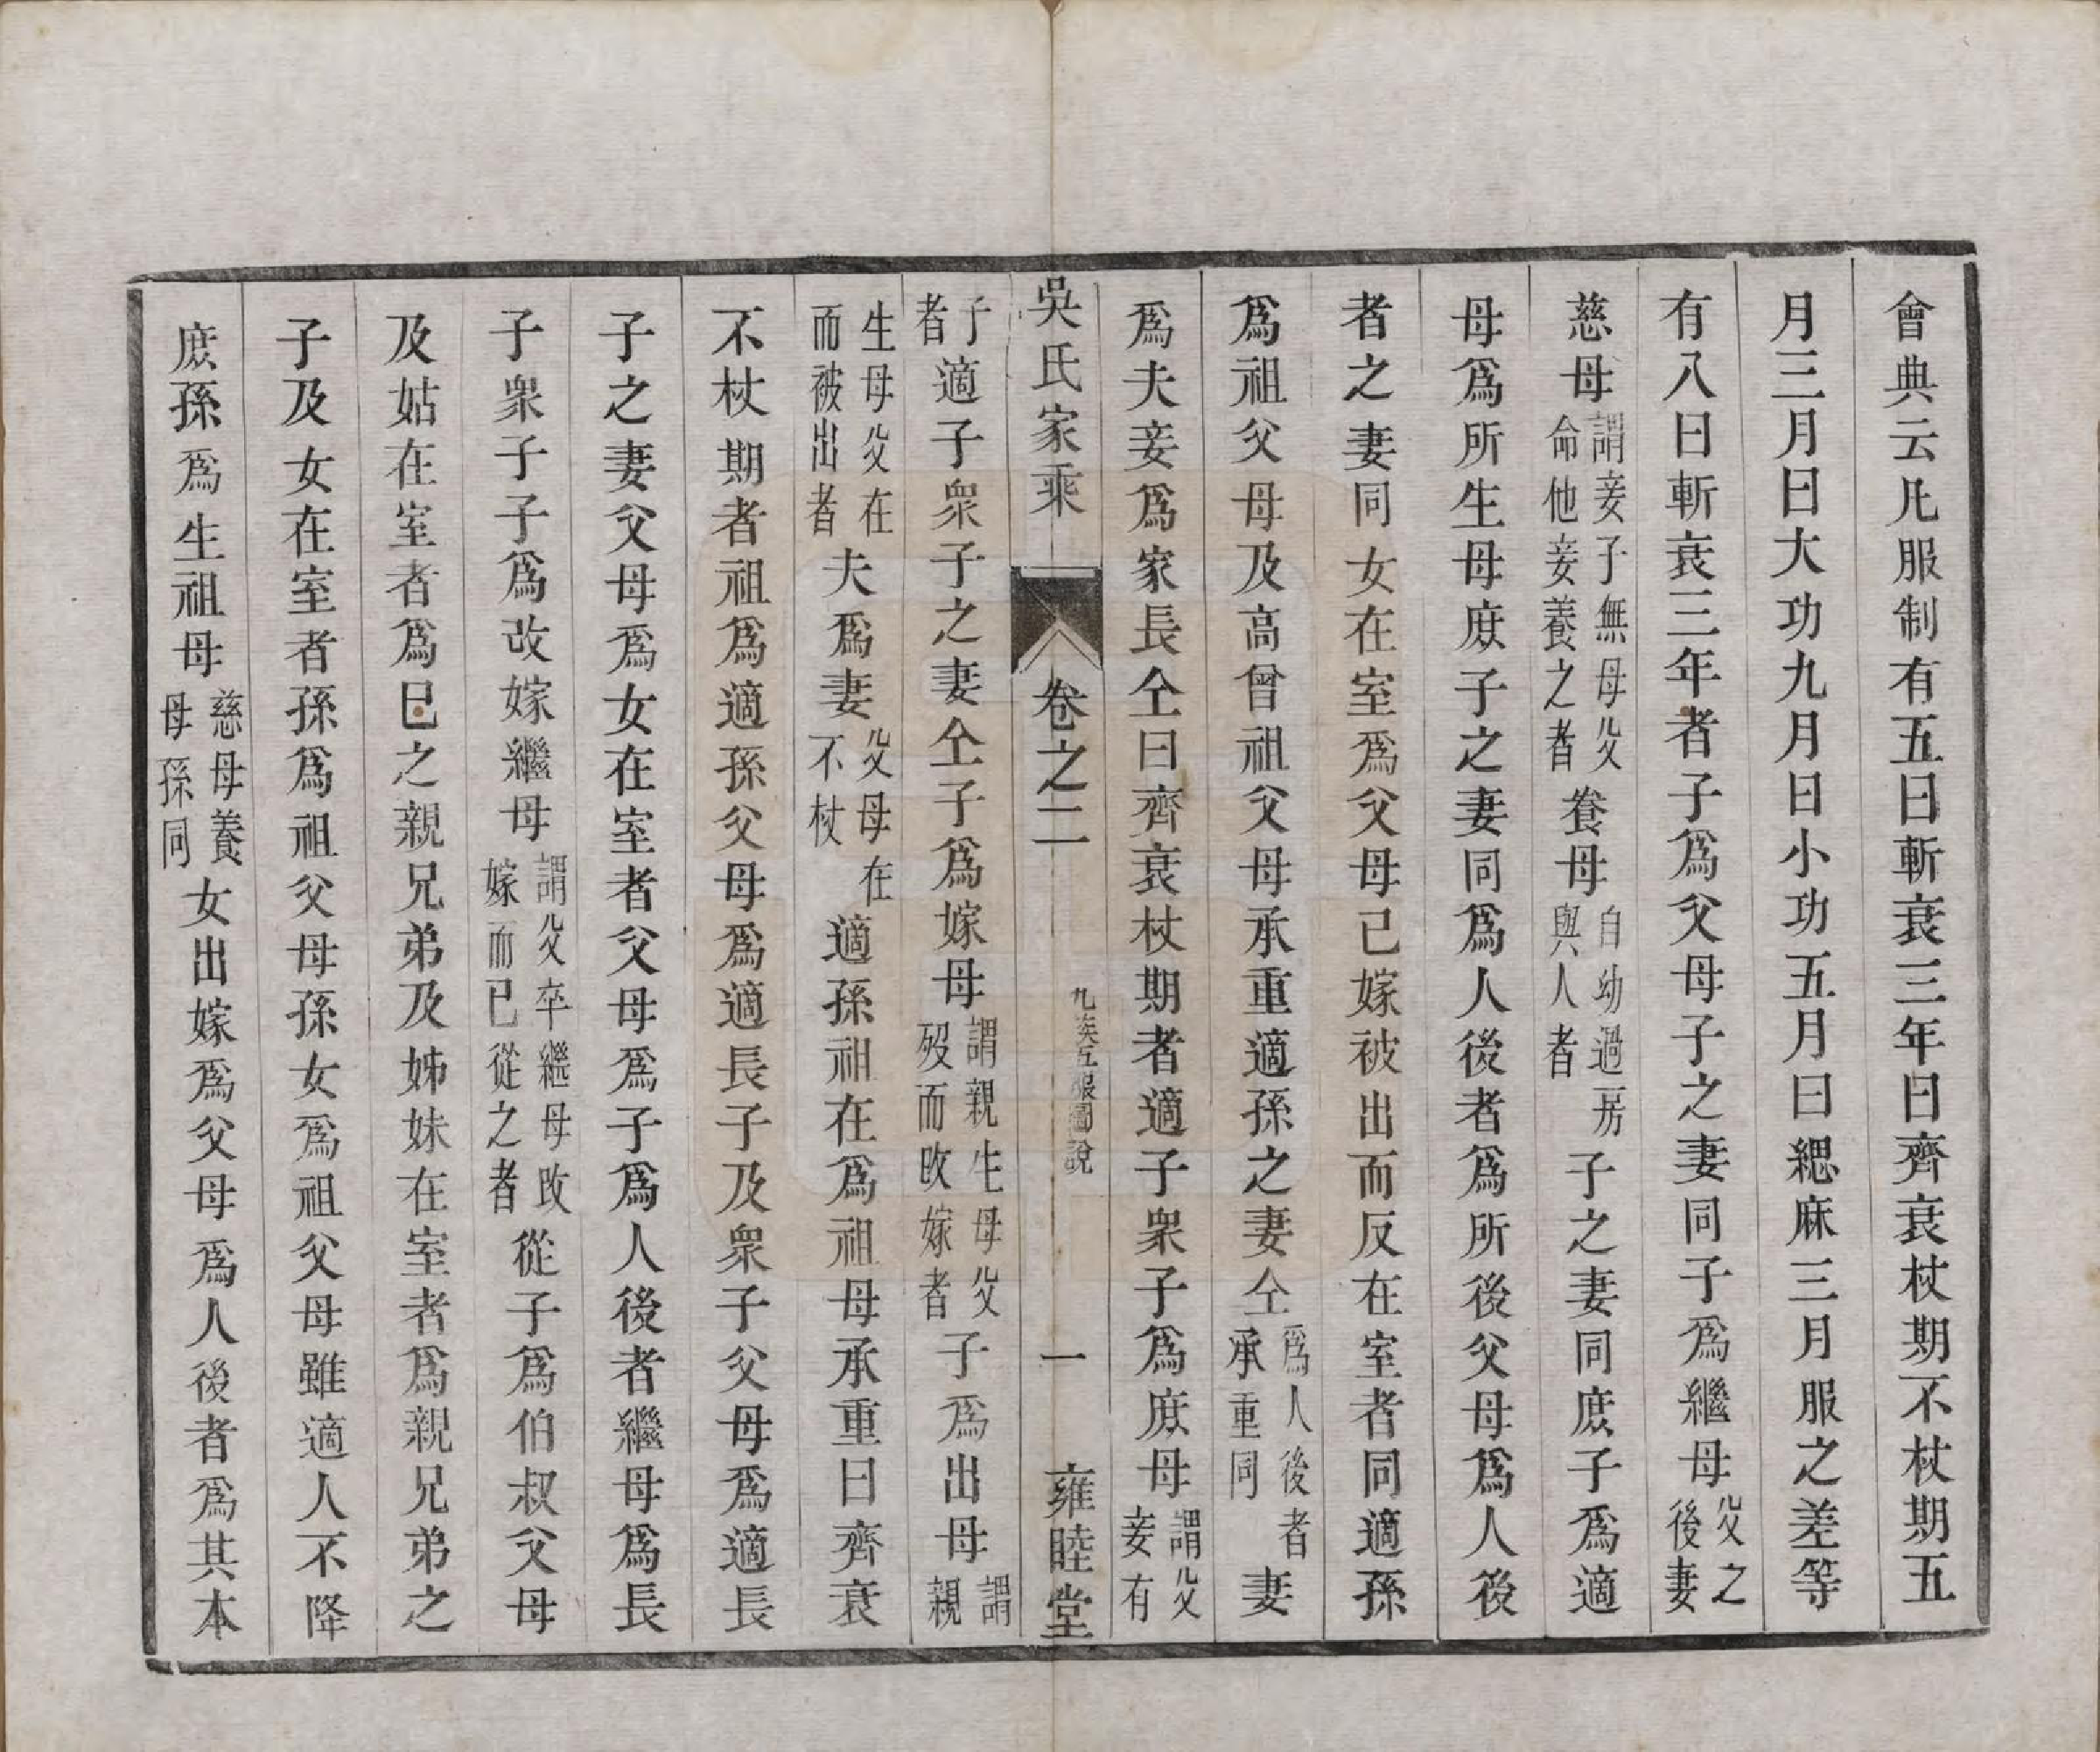 會典云凡服制有五曰斬衰三年曰齊衰杖期不杖期五
月三月曰大功九月曰小功五月曰緦麻三月服之差等
有八曰斬衰三年者子爲父母子之妻同子爲繼母父之後妻
慈母謂妾子無母父命他妾養之者養母自幼過房與人者子之妻同庶子爲適
母爲所生母庶子之妻同爲人後者爲所後父母爲人後
者之妻同女在室爲父母已嫁被出而反在室者同適孫
爲祖父母及高曾祖父母承重適孫之妻仝爲人後者承重同妻
爲夫妾爲家長仝曰齊衰杖期者適子衆子爲庶母謂父妾有
吳氏家乘 卷之二 九族五服圖說 一 雍睦堂
子者適子衆子之妻仝子爲嫁母謂親生母父歿而改嫁者子爲出母謂親
生母父在而被出者夫爲妻父母在不杖適孫祖在爲祖母承重曰齊衰
不杖期者祖爲適孫父母爲適長子及衆子父母爲適長
子之妻父母爲女在室者父母爲子爲人後者繼母爲長
子衆子子爲改嫁繼母謂父卒繼母改嫁而已從之者從子爲伯叔父母
及姑在室者爲已之親兄弟及姊妹在室者爲親兄弟之
子及女在室者孫爲祖父母孫女爲祖父母雖適人不降
庶孫爲生祖母慈母養母孫同女出嫁爲父母爲人後者爲其本